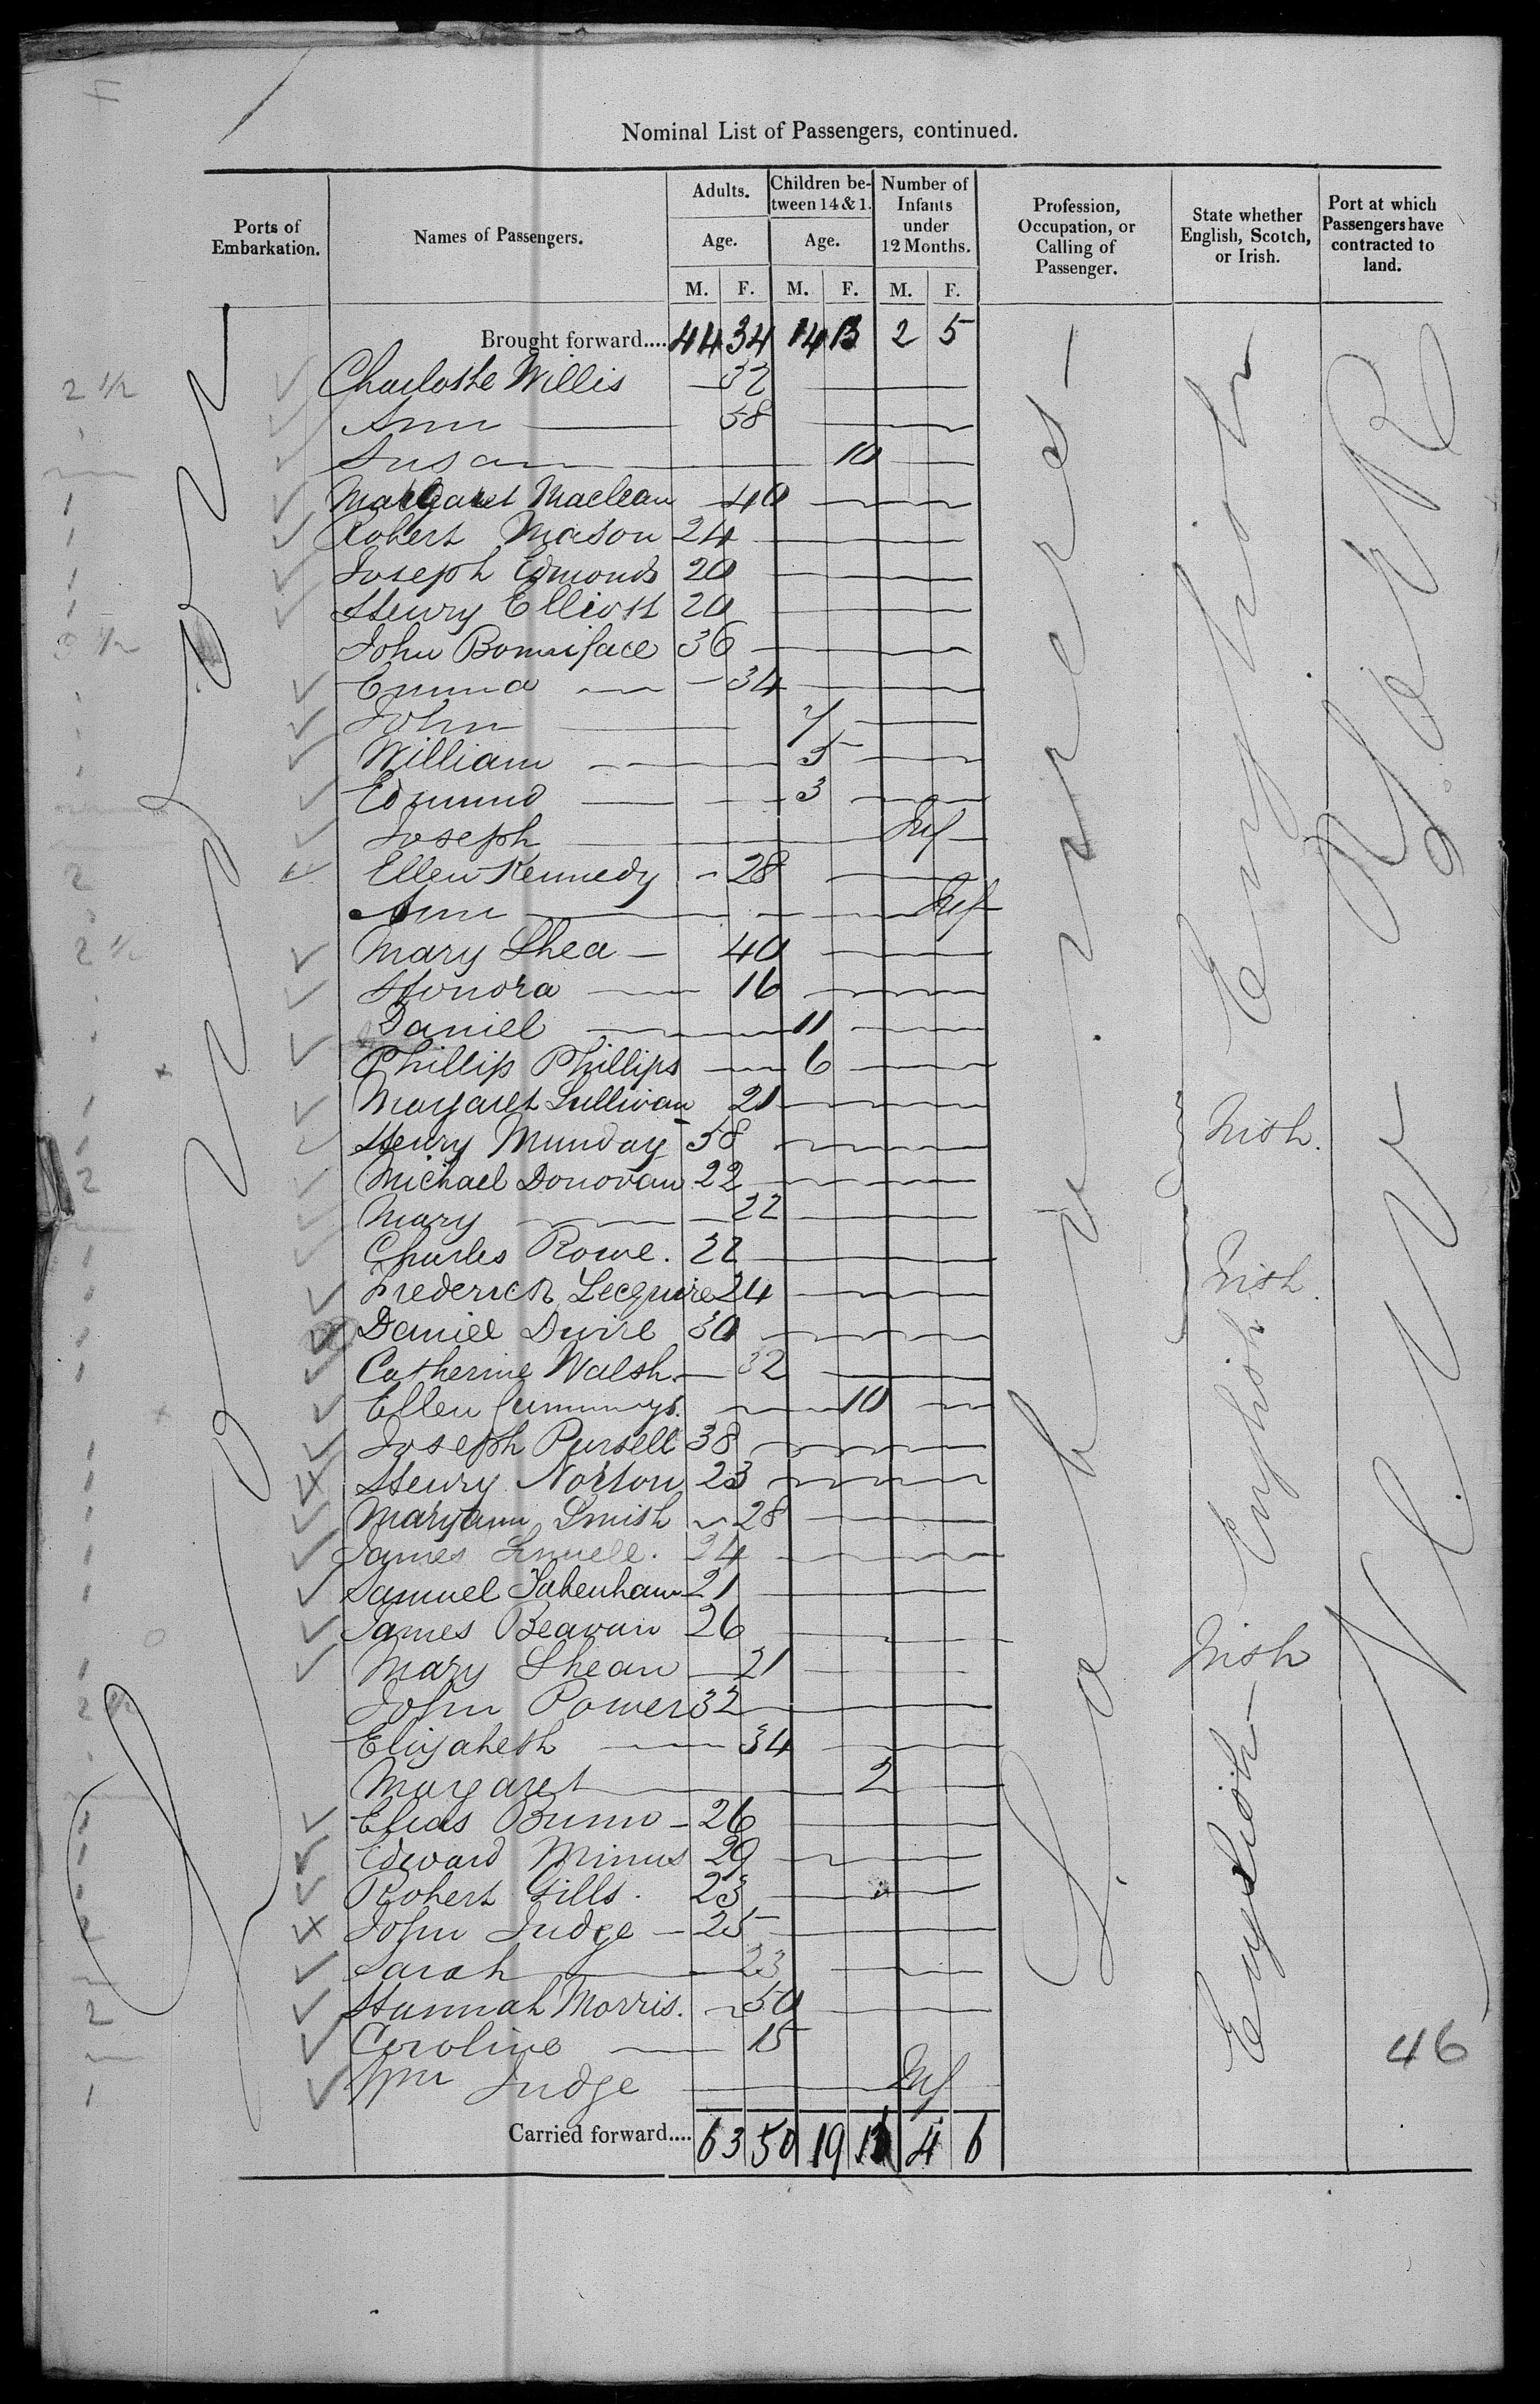 Nominal List of Passengers, continued.
Ports of Embarkation.
Names of Passengers.
Adults. Age. M. F.
Children between 14 & 1. Age. M. F.
Number of Infants under 12 Months. M. F.
Profession, Occupation, or Calling of Passenger.
State whether English, Scotch, or Irish.
Port at which Passengers have contracted to land.
Brought forward.... 44 34 14 13 2 5
2 1/2 Charlotte Willis 32
Ann 58
Susan 10
1 Margaret Maclean 40
1 Robert Mason 24
1 Joseph Edmonds 20
1 Henry Elliott 20
3 1/2 John Bonniface 36
Emma 34
John 7
William 5
Edmund 3
Joseph Inf
2 Ellen Kennedy 28
Ann Inf
2 1/2 Mary Shea 40
Honora 16
Daniel 11
Phillip Phillips 6
1 Margaret Sullivan 21 Irish.
1 Henry Munday 58
2 Michael Donovan 22
Mary 22
1 Charles Rowe. 22
1 Frederick Lecquire 24 Irish.
1 Daniel Dwire 30
1 Catherine Walsh. 32
Ellen Cummings. 10
1 Joseph Pursell 38
1 Henry Norton 23
1 Maryann Smith 28
1 James 24
1 Samuel Takenham 21
James Beavan 26
1 Mary Shean 21 Irish
2 1/2 John Power 32
Elizabeth 34
Margaret 2
1 Elias Bunn 26
1 Edward Minns 29
1 Robert Gills. 23
2 John Judge 25
Sarah 23
2 Hannah Morris. 50
Caroline 15
1 Wm Judge Inf
Carried forward.... 63 50 19 4 6
London
Labourers
English
English
English
New York
46